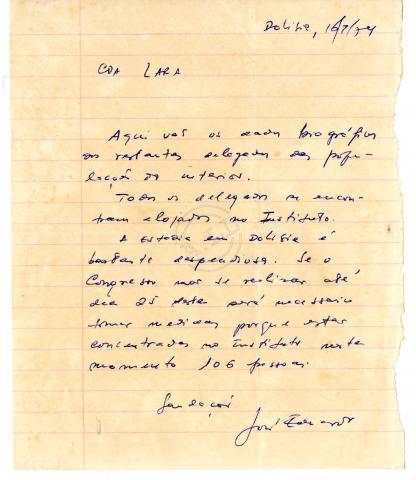 Dolisie, 16/7/74
CDA LARA
Aqui vão os dados biográficos
dos restantes delegados das popu-
lações do interior.
Todos os delegados se encon-
tram alojados no Instituto.
A Estadia em Dolisie é
bastante despendiosa. Se o
Congresso não se realizar até
dia 25 deste será necessário
tomar medidas porque estão
concentrados no Instituto neste
momento 106 pessoas.
Saudações
José Eduardo